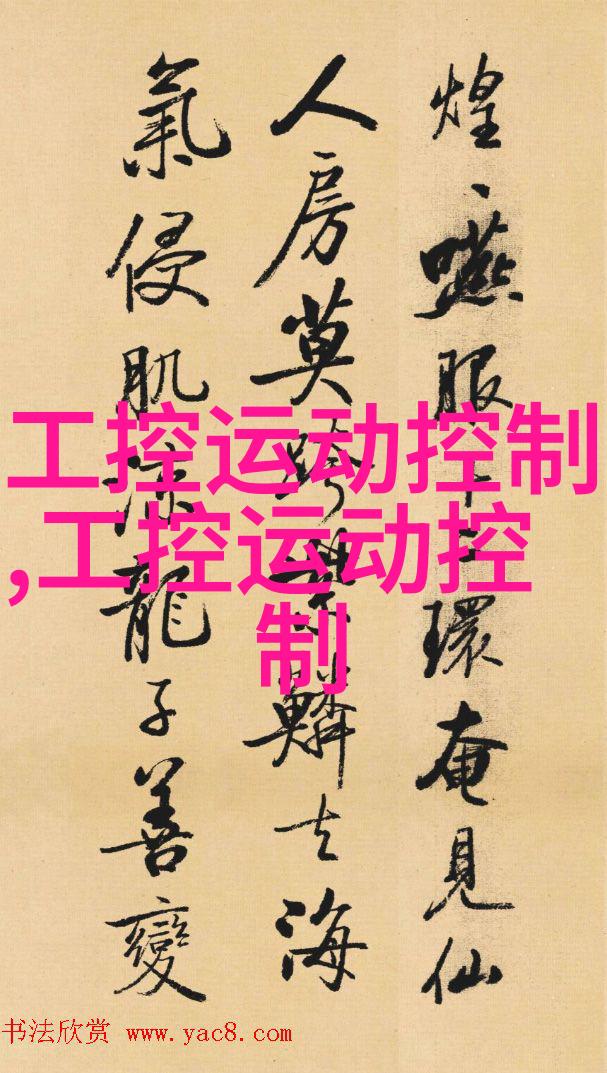 煌、嚥服十二環奄見仙
人房莫跨鱗去海
氣侵肌涼龍子善變
工控运动控制
,工控运动控
制
书法欣赏 www.yac8.com